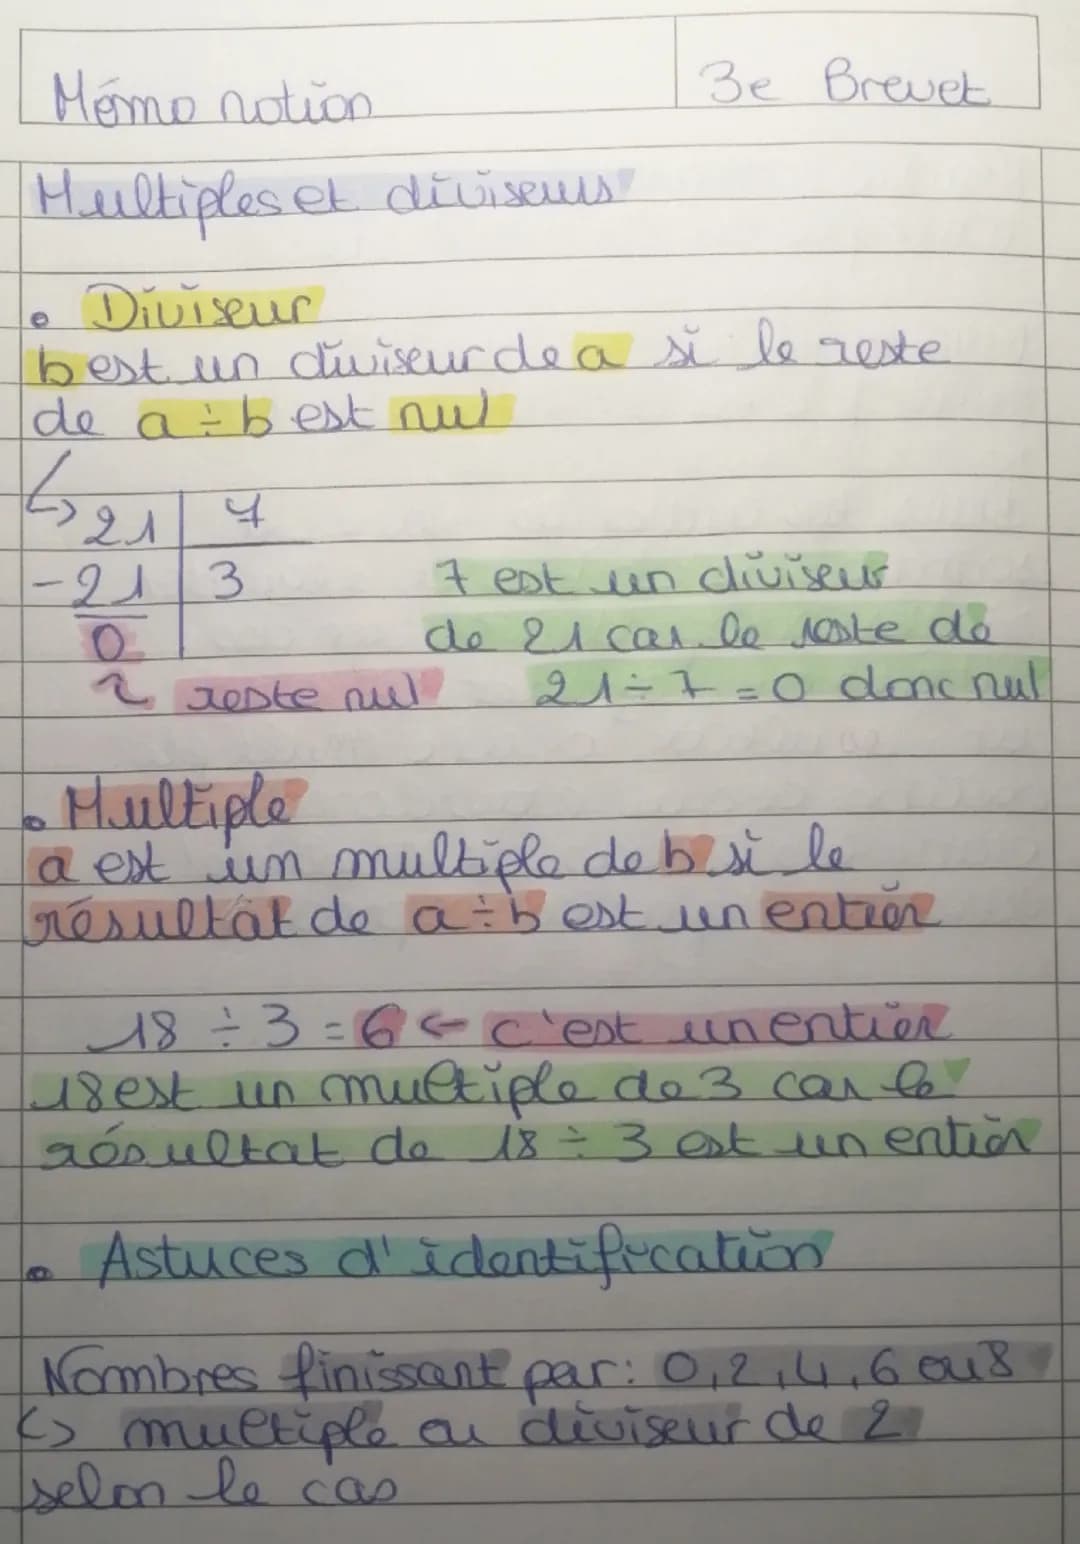 Mémo notion
3e Brevet
Multiples et diviseurs
• Diviseur
b est un diviseur de a si le reste
de a ÷ b est nul
↳ 21 | 7
-21 | 3
0
7 est un diviseur
de 21 car le reste de
21 ÷ 7 = 0 donc nul
reste nul
• Multiple
a est un multiple de b si le
résultat de a ÷ b est un entier
18 ÷ 3 = 6 ← c'est un entier
18 est un multiple de 3 car le
résultat de 18 ÷ 3 est un entier
• Astuces d'identification
Nombres finissant par : 0, 2, 4, 6 ou 8
↳ multiple ou diviseur de 2
selon le cas